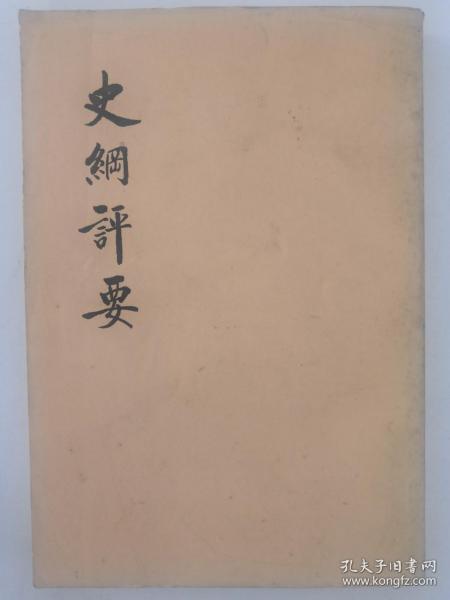 史綱評要
孔夫子旧书网
www.kongfz.com